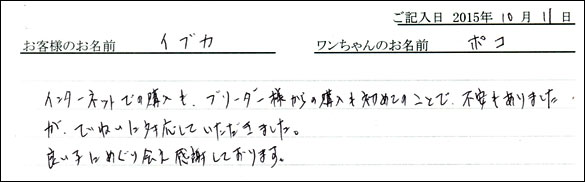 ご記入日 2015年 10 月 11 日
お客様のお名前 イブカ ワンちゃんのお名前 ポコ
インターネットでの購入も、ブリーダー様からの購入も初めてのことで、不安もありました
が、ていねいに対応していただきました。
良い子にめぐり会え感謝しております。